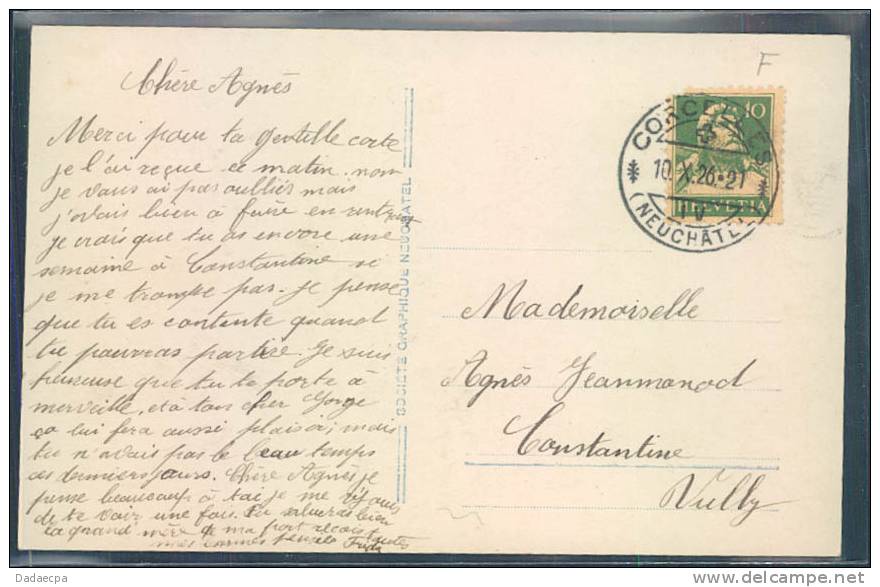 Chère Agnès
Merci pour ta gentille carte
je l'ai reçue ce matin. non
je vous ai pas oulliés mais
j'avais bien à faire en rentrant
je crois que tu as encore une
semaine à Constantine si
je me trompe pas. je pense
que tu es contente quand
tu pourras partire. Je suis
heureuse que tu te porte à
merveille, et à ton cher Gorge
ça lui fera aussi plaisir, mais
tu n'avais pas le beau temps
ces derniers jours. Chère Agnès je
pense beaucoup à toi je me réjouis
de te voir une fois. Tu salueras bien
ta grand mère de ma part reçois toutes
mes bonnes pensées Frida
SOCIÉTÉ GRAPHIQUE NEUCHATEL
F
10
HELVETIA
CORCELLES
10.X.26.-21
IV
(NEUCHÂTEL)
Mademoiselle
Agnès Jeanmonod
Constantine
Vully
Dadaecpa
www.delcampe.net